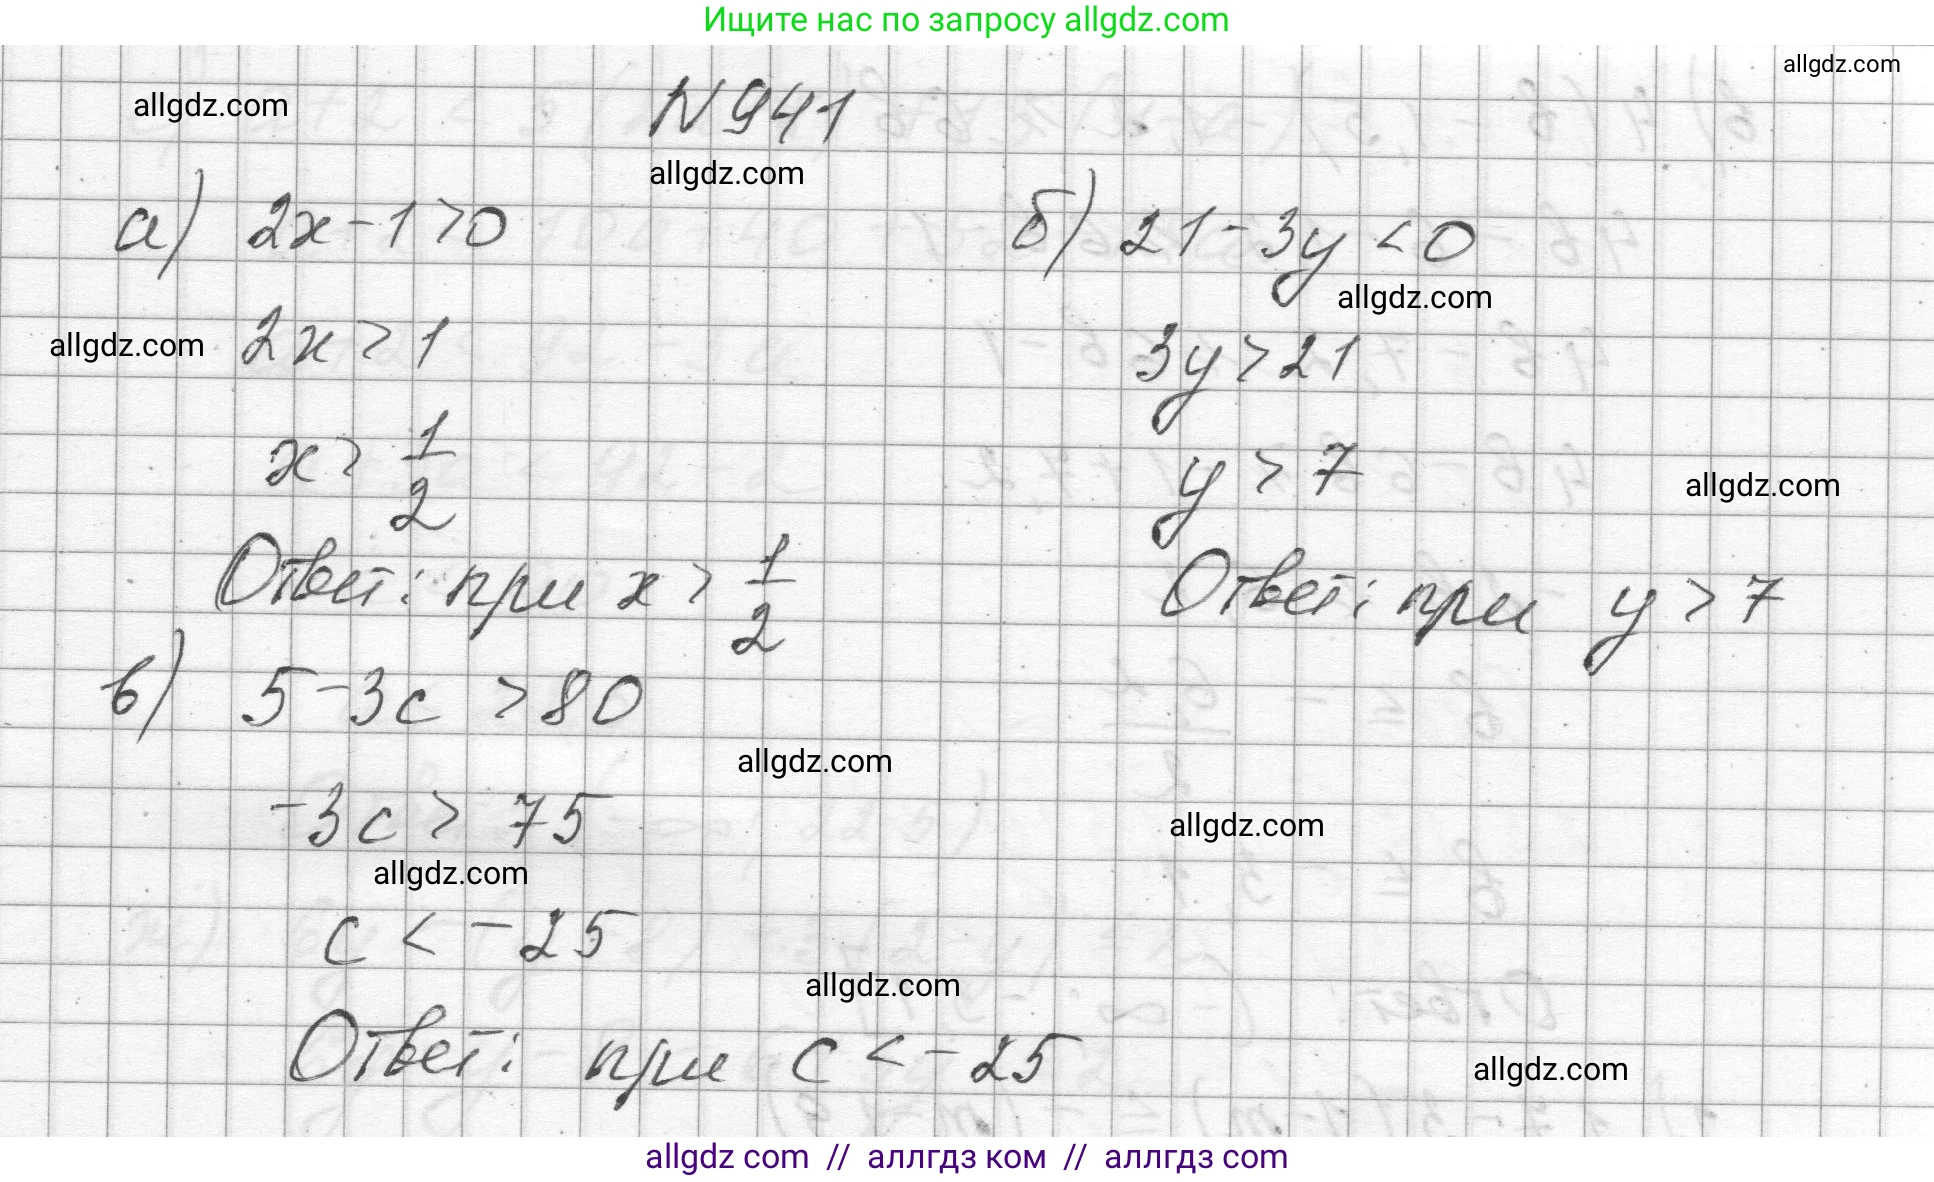 Ищите нас по запросу allgdz.com
allgdz.com
allgdz.com
N 941
allgdz.com
а) 2x - 1 > 0
б) 21 - 3y < 0
allgdz.com
allgdz.com
2x > 1
3y > 21
x > 1/2
y > 7
allgdz.com
Ответ: при x > 1/2
Ответ: при y > 7
в) 5 - 3c > 80
allgdz.com
-3c > 75
allgdz.com
allgdz.com
c < -25
allgdz.com
Ответ: при c < -25
allgdz.com
allgdz com // аллгдз ком // аллгдз com